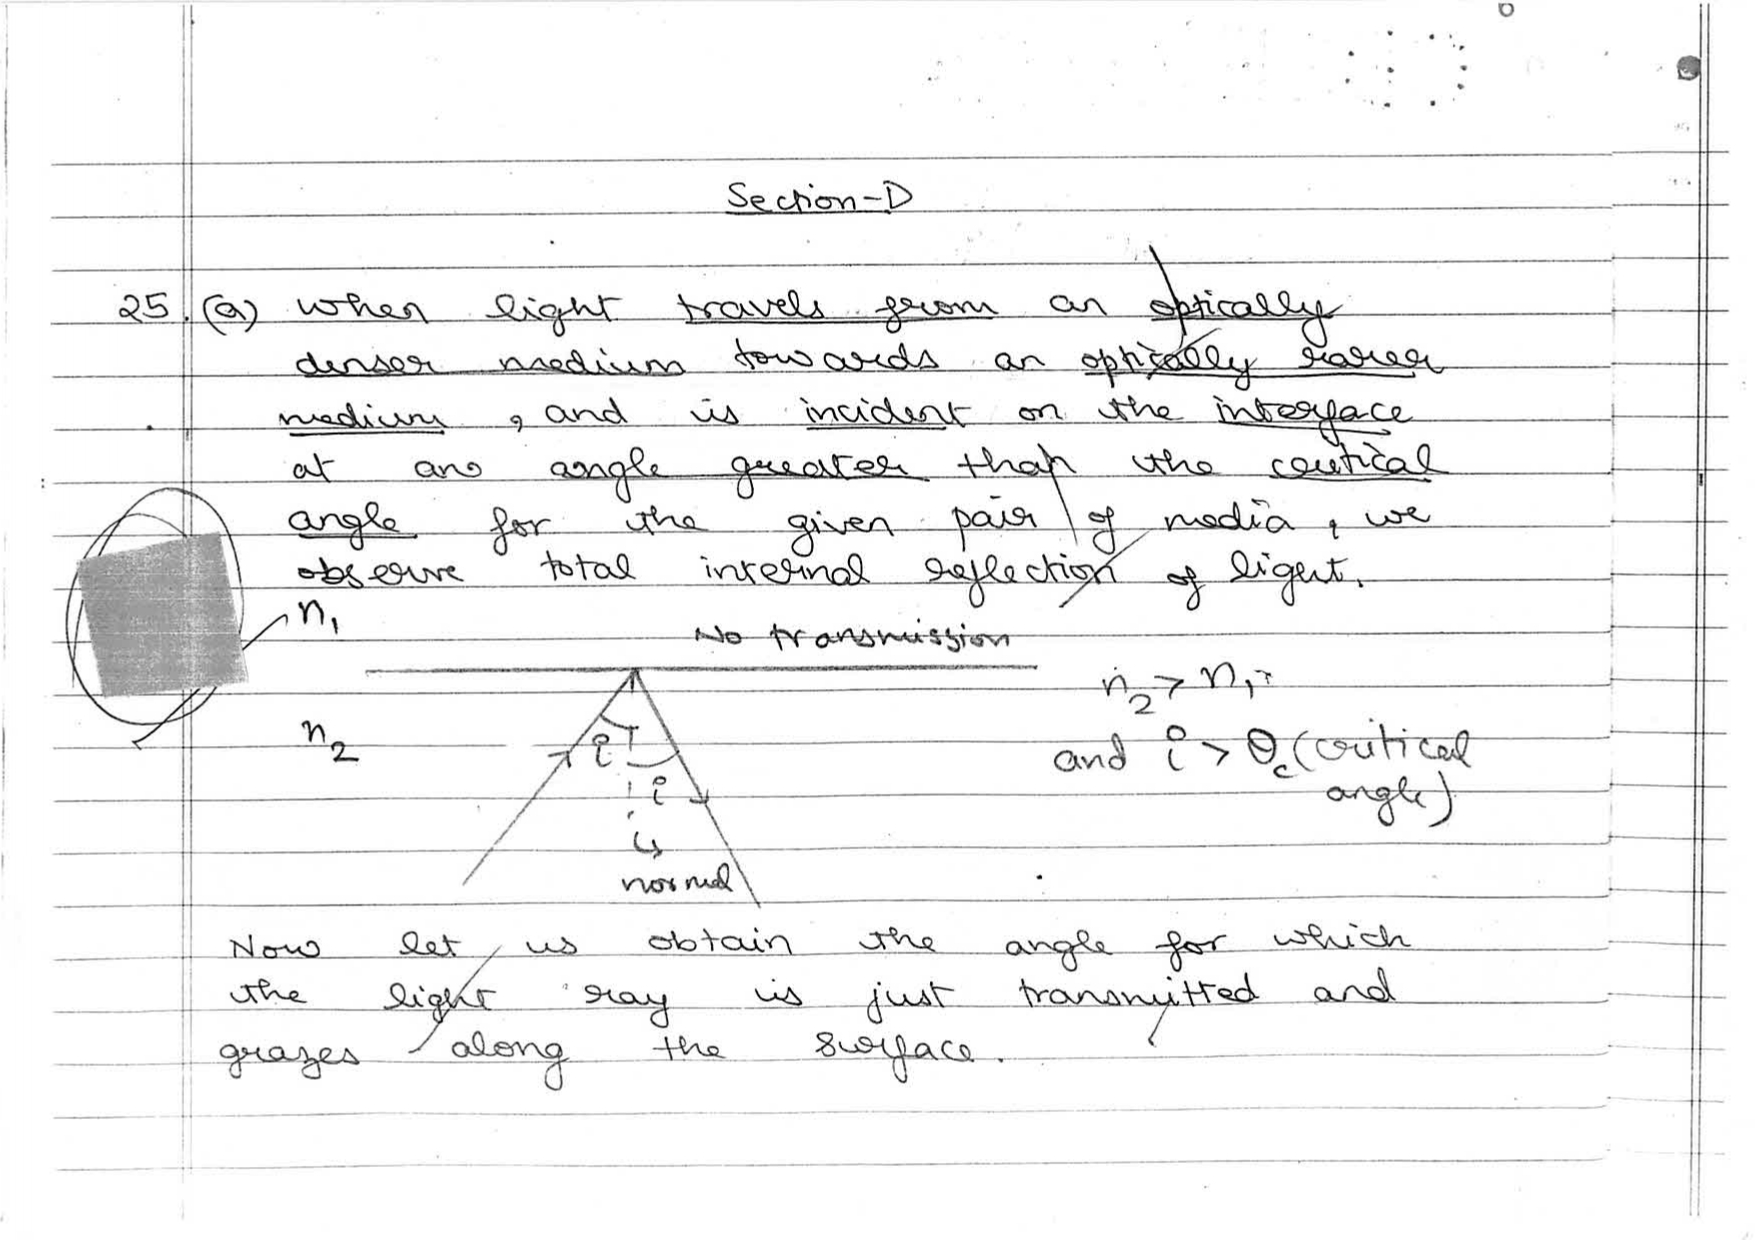 Section-D
25. (a) When light travels from an optically
denser medium towards an optically rarer
medium, and is incident on the interface
at an angle greater than the critical
angle for the given pair of media, we
observe total internal reflection of light.
n₁
No transmission
n₂ > n₁
n₂
i
and i > θc (critical
i
angle)
normal
Now let us obtain the angle for which
the light ray is just transmitted and
grazes along the surface.